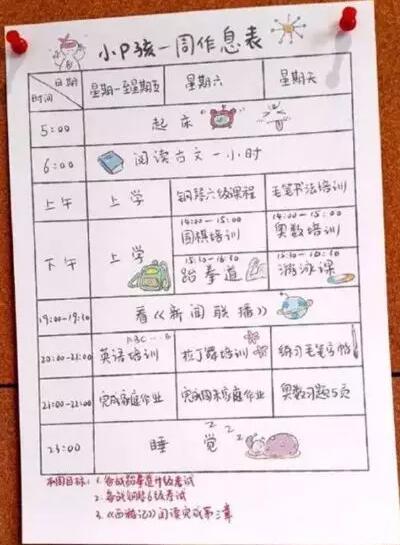 小P孩一周作息表
日期
时间
星期一至星期五 星期六 星期天
5:00 起床
6:00 阅读古文一小时
上午 上学 钢琴六级课程 毛笔书法培训
下午 上学
14:00-15:00 14:00-15:00
围棋培训 奥数培训
15:30-16:30 15:30-16:30
跆拳道 游泳课
19:00-19:30 看《新闻联播》
ABC
20:00-21:00 英语培训 拉丁舞培训 练习毛笔字帖
21:00-22:00 完成家庭作业 完成周末家庭作业 奥数习题5页
23:00 睡觉 z z z
本周目标: 1. 备战跆拳道升级考试
2. 备战钢琴6级考试
3.《西游记》阅读完成第三章